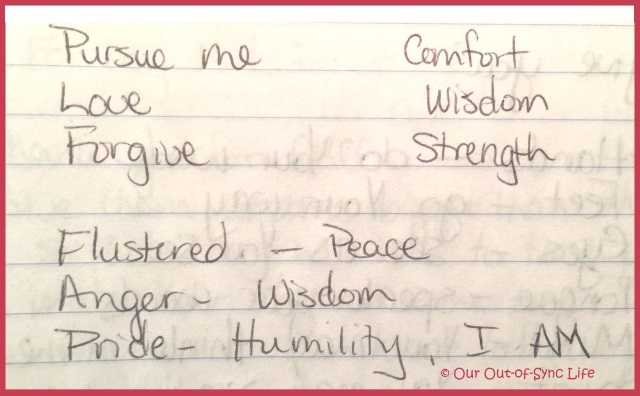 Pursue me Comfort
Love Wisdom
Forgive Strength
Flustered - Peace
Anger - Wisdom
Pride - Humility, I AM
© Our Out-of-Sync Life